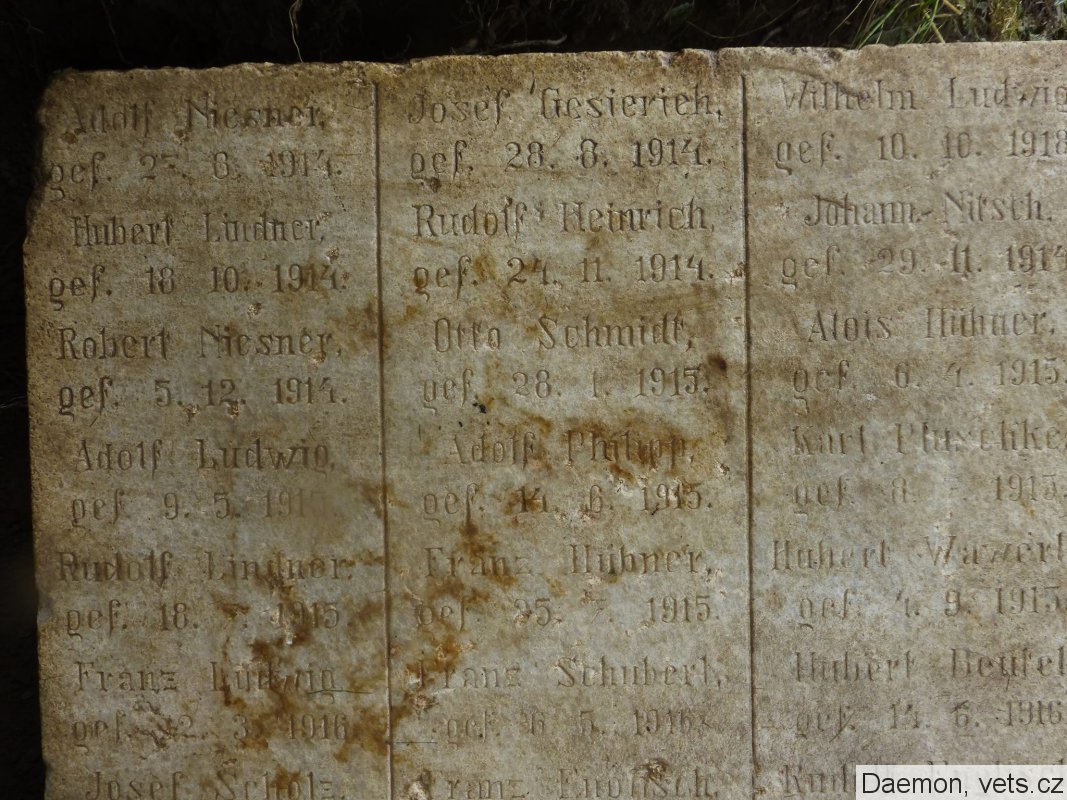 Adolf Niesner,
gef. 8. 1914.
Hubert Lindner,
gef. 18. 10. 1914.
Robert Niesner,
gef. 5. 12. 1914.
Adolf Ludwig,
gef. 9. 5.
Rudolf Lindner,
gef. 18. 1915.
Franz Ludwig
gef. 3. 1916.
Josef Scholz,
Josef Gesierich,
gef. 28. 8. 1914.
Rudolf Heinrich,
gef. 24. 11. 1914.
Otto Schmidt,
gef. 28. 1. 1915.
Adolf Philipp,
gef. 14. 6. 1915.
Franz Hübner,
gef. 25. 7. 1915.
Franz Schubert,
gef. 6. 1916.
Franz
Wilhelm Ludwig
gef. 10. 10. 1918
Johann Nitsch,
gef. 29. 11. 1914
Alois Hübner,
gef. 6. 4. 1915.
Karl Pluschke,
gef. 8. 1915.
Hubert Wawerk
gef. 4. 9. 1915
Hubert Beutel
gef. 14. 6. 1916
Daemon, vets.cz